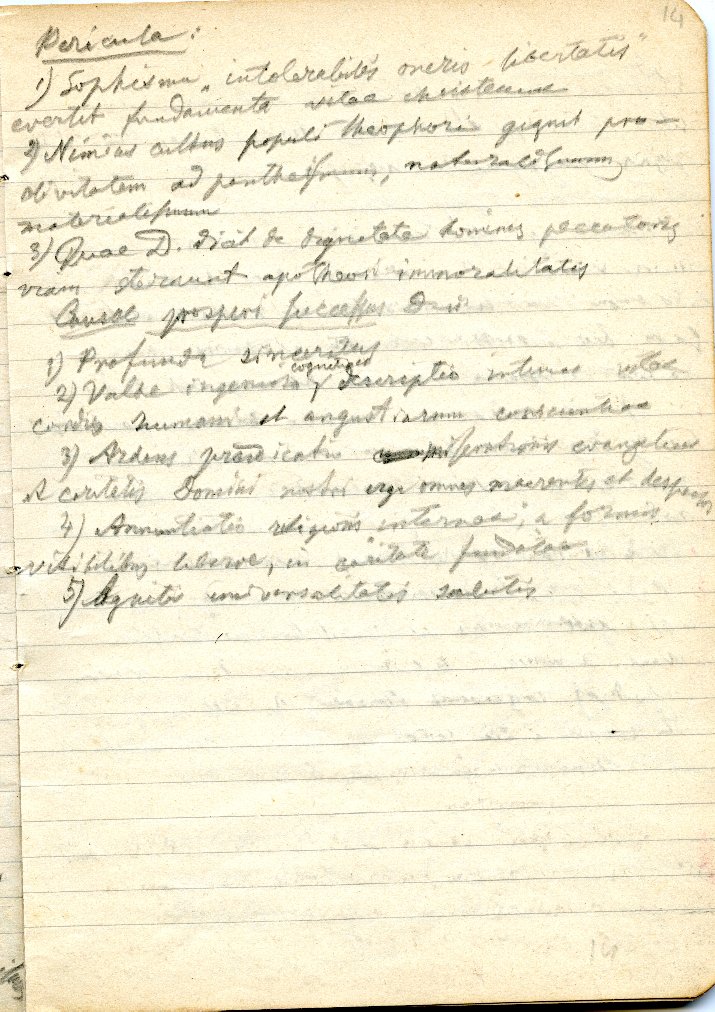 14
Pericula:
1) Sophisma „intolerabilis oneris libertatis"
evertit fundamenta vitae christianae
2) Nimius cultus populi theophori gignit pro-
clivitatem ad pantheismum, naturalismum,
materialismum
3) Quae D. dicit de dignitate hominis peccatoris
viam sternunt apotheosi immoralitatis
Causae prosperi successus
1) Profunda sinceritas
2) Valde ingeniosa cognitio descriptio internae vitae
cordis humani et angustiarum conscientiae
3) Ardens praedicatio miserationis evangelicae
et caritatis Domini nostri erga omnes maerentes et
4) Annuntiatio religionis internae, a formis
visibilibus liberae, in caritate fundatae
5) universalitatis salutis
15